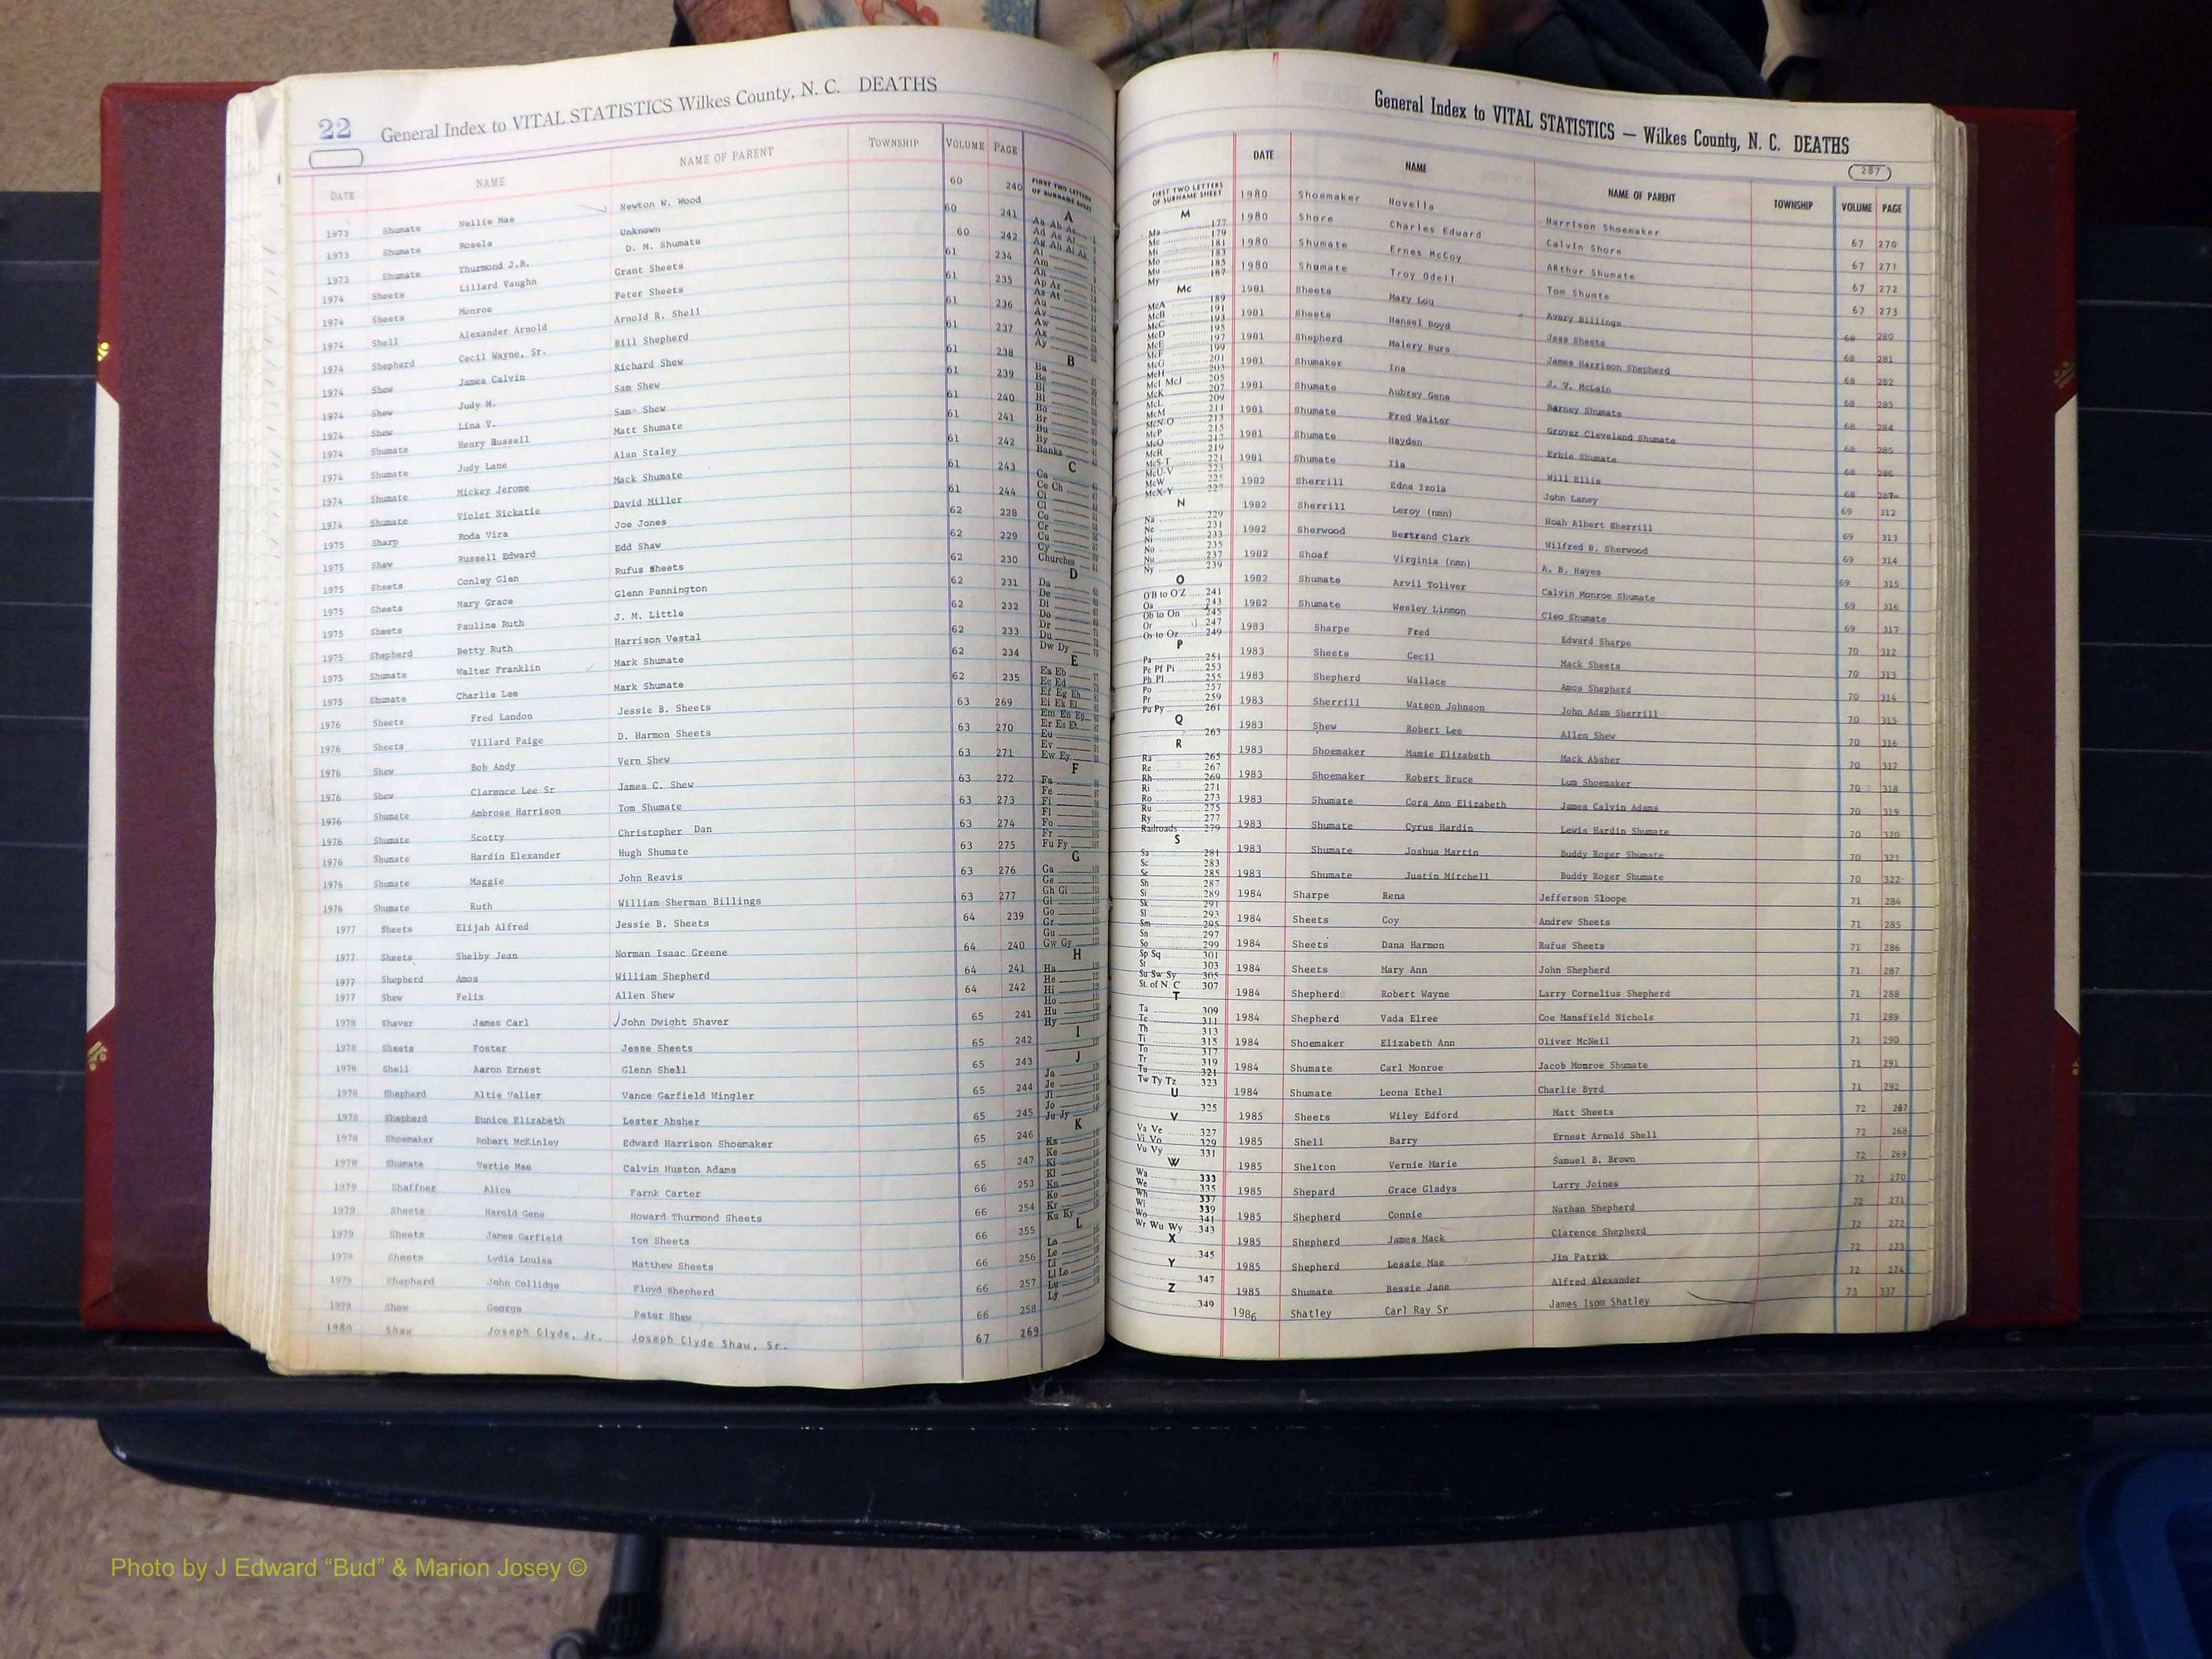 22 General Index to VITAL STATISTICS Wilkes County, N. C. DEATHS
DATE NAME NAME OF PARENT TOWNSHIP VOLUME PAGE
1973 Shumate Nellie Mae Newton W. Wood 60 240
1973 Shumate Rosela Unknown 60 241
1973 Shumate Thurmond J.R. D. M. Shumate 60 242
1974 Sheets Lillard Vaughn Grant Sheets 61 234
1974 Sheets Monroe Peter Sheets 61 235
1974 Shell Alexander Arnold Arnold R. Shell 61 236
1974 Shepherd Cecil Wayne, Sr. Bill Shepherd 61 237
1974 Shew James Calvin Richard Shew 61 238
1974 Shew Judy M. Sam Shew 61 239
1974 Shew Lina V. Sam Shew 61 240
1974 Shumate Henry Russell Matt Shumate 61 241
1974 Shumate Judy Lane Alan Staley 61 242
1974 Shumate Mickey Jerome Mack Shumate 61 243
1974 Shumate Violet Nickatie David Miller 61 244
1975 Sharp Roda Vira Joe Jones 62 228
1975 Shaw Russell Edward Edd Shaw 62 229
1975 Sheets Conley Glen Rufus Sheets 62 230
1975 Sheets Mary Grace Glenn Pennington 62 231
1975 Sheets Pauline Ruth J. M. Little 62 232
1975 Shepherd Betty Ruth Harrison Vestal 62 233
1975 Shumate Walter Franklin Mark Shumate 62 234
1975 Shumate Charlie Lee Mark Shumate 62 235
1976 Sheets Fred Landon Jessie B. Sheets 63 269
1976 Sheets Villard Paige D. Harmon Sheets 63 270
1976 Shew Bob Andy Vern Shew 63 271
1976 Shew Clarence Lee Sr James C. Shew 63 272
1976 Shumate Ambrose Harrison Tom Shumate 63 273
1976 Shumate Scotty Christopher Dan 63 274
1976 Shumate Hardin Elexander Hugh Shumate 63 275
1976 Shumate Maggie John Reavis 63 276
1976 Shumate Ruth William Sherman Billings 63 277
1977 Sheets Elijah Alfred Jessie B. Sheets 64 239
1977 Sheets Shelby Jean Norman Isaac Greene 64 240
1977 Shepherd Amos William Shepherd 64 241
1977 Shew Felix Allen Shew 64 242
1978 Shaver James Carl John Dwight Shaver 65 241
1978 Sheets Foster Jesse Sheets 65 242
1978 Shell Aaron Ernest Glenn Shell 65 243
1978 Shepherd Altie Valier Vance Garfield Wingler 65 244
1978 Shepherd Eunice Elizabeth Lester Absher 65 245
1978 Shoemaker Robert McKinley Edward Harrison Shoemaker 65 246
1978 Shumate Vertie Mae Calvin Huston Adams 65 247
1979 Shaffner Alice Farnk Carter 66 253
1979 Sheets Harold Gene Howard Thurmond Sheets 66 254
1979 Sheets James Garfield Ice Sheets 66 255
1979 Sheets Lydia Louisa Matthew Sheets 66 256
1979 Shepherd John Collidge Floyd Shepherd 66 257
1979 Shew George Peter Shew 66 258
1980 Shaw Joseph Clyde, Jr. Joseph Clyde Shaw, Sr. 67 269
FIRST TWO LETTERS
OF SURNAME SHEET
A
Aa Ab Ac
Ad Ae Af
Ag Ah Ai Ak
Al
Am
An
Ap Ar
As At
Au
Av
Aw
Ax
Ay
B
Ba
Be
Bi
Bl
Bo
Br
Bu
By
Banks
C
Ca
Ce Ch
Ci
Cl
Co
Cr
Cu
Cy
Churches
D
Da
De
Di
Do
Dr
Du
Dw Dy
E
Ea Eb
Ec Ed
Ef Eg Eh
Ei Ek El
Em En Ep
Er Es Et
Eu
Ev
Ew Ey
F
Fa
Fe
Fi
Fl
Fo
Fr
Fu Fy
G
Ga
Ge
Gh Gi
Gl
Go
Gr
Gu
Gw Gy
H
Ha
He
Hi
Ho
Hu
Hy
I
J
Ja
Je
Ji
Jo
Ju Jy
K
Ka
Ke
Ki
Kl
Kn
Ko
Kr
Ku Ky
L
La
Le
Li
Ll Lo
Lu
Ly
General Index to VITAL STATISTICS — Wilkes County, N. C. DEATHS
287
FIRST TWO LETTERS
OF SURNAME SHEET
M
Ma 177
Me 179
Mi 181
Mo 183
Mu 185
My 187
Mc
McA 189
McB 191
McC 193
McD 195
McE 197
McF 199
McG 201
McH 203
McI McJ 205
McK 207
McL 209
McM 211
McN-O 213
McP 215
McQ 217
McR 219
McS-T 221
McU-V 223
McW 225
McX-Y 227
N
Na 229
Ne 231
Ni 233
No 235
Nu 237
Ny 239
O
O'B to O'Z 241
Oa 243
Ob to On 245
Or 247
Os to Oz 249
P
Pa 251
Pe Pf Pi 253
Ph Pl 255
Po 257
Pr 259
Pu Py 261
Q
263
R
Ra 265
Re 267
Rh 269
Ri 271
Ro 273
Ru 275
Ry 277
Railroads 279
S
Sa 281
Sc 283
Se 285
Sh 287
Si 289
Sk 291
Sl 293
Sm 295
Sn 297
So 299
Sp Sq 301
St 303
Su Sw Sy 305
St. of N C 307
T
Ta 309
Te 311
Th 313
Ti 315
To 317
Tr 319
Tu 321
Tw Ty Tz 323
U
325
V
Va Ve 327
Vi Vo 329
Vu Vy 331
W
Wa 333
We 335
Wh 337
Wi 339
Wo 341
Wr Wu Wy 343
X
345
Y
347
Z
349
DATE NAME NAME OF PARENT TOWNSHIP VOLUME PAGE
1980 Shoemaker Hovella Harrison Shoemaker 67 270
1980 Shore Charles Edward Calvin Shore 67 271
1980 Shumate Ernes McCoy ARthur Shumate 67 272
1980 Shumate Troy Odell Tom Shumte 67 273
1981 Sheets Mary Lou Avery Billings 68 280
1981 Sheets Hansel Boyd Jess Sheets 68 281
1981 Shepherd Malery Burs James Harrison Shepherd 68 282
1981 Shumaker Ina J. V. McLain 68 283
1981 Shumate Aubrey Gene Barney Shumate 68 284
1981 Shumate Fred Walter Grover Cleveland Shumate 68 285
1981 Shumate Hayden Erbie Shumate 68 286
1981 Shumate Ila Will Ellis 68 287
1982 Sherrill Edna Izola John Laney 69 312
1982 Sherrill Leroy (nmn) Noah Albert Sherrill 69 313
1982 Sherwood Bertrand Clark Wilfred B. Sherwood 69 314
1982 Shoaf Virginia (nmn) A. B. Hayes 69 315
1982 Shumate Arvil Toliver Calvin Monroe Shumate 69 316
1982 Shumate Wesley Linmon Cleo Shumate 69 317
1983 Sharpe Fred Edward Sharpe 70 312
1983 Sheets Cecil Mack Sheets 70 313
1983 Shepherd Wallace Amos Shepherd 70 314
1983 Sherrill Watson Johnson John Adam Sherrill 70 315
1983 Shew Robert Lee Allen Shew 70 316
1983 Shoemaker Mamie Elizabeth Mack Absher 70 317
1983 Shoemaker Robert Bruce Lum Shoemaker 70 318
1983 Shumate Cora Ann Elizabeth James Calvin Adams 70 319
1983 Shumate Cyrus Hardin Lewis Hardin Shumate 70 320
1983 Shumate Joshua Martin Buddy Roger Shumate 70 321
1983 Shumate Justin Mitchell Buddy Roger Shumate 70 322
1984 Sharpe Rena Jefferson Sloope 71 284
1984 Sheets Coy Andrew Sheets 71 285
1984 Sheets Dana Harmon Rufus Sheets 71 286
1984 Sheets Mary Ann John Shepherd 71 287
1984 Shepherd Robert Wayne Larry Cornelius Shepherd 71 288
1984 Shepherd Vada Elree Coe Mansfield Nichols 71 289
1984 Shoemaker Elizabeth Ann Oliver McNeil 71 290
1984 Shumate Carl Monroe Jacob Monroe Shumate 71 291
1984 Shumate Leona Ethel Charlie Byrd 71 292
1985 Sheets Wiley Edford Matt Sheets 72 267
1985 Shell Barry Ernest Arnold Shell 72 268
1985 Shelton Vernie Marie Samuel B. Brown 72 269
1985 Shepard Grace Gladys Larry Joines 72 270
1985 Shepherd Connie Nathan Shepherd 72 271
1985 Shepherd James Mack Clarence Shepherd 72 272
1985 Shepherd Lessie Mae Jim Patrik 72 273
1985 Shumate Bessie Jane Alfred Alexander 72 274
1986 Shatley Carl Ray Sr James Isom Shatley 73 337
Photo by J Edward “Bud” & Marion Josey ©